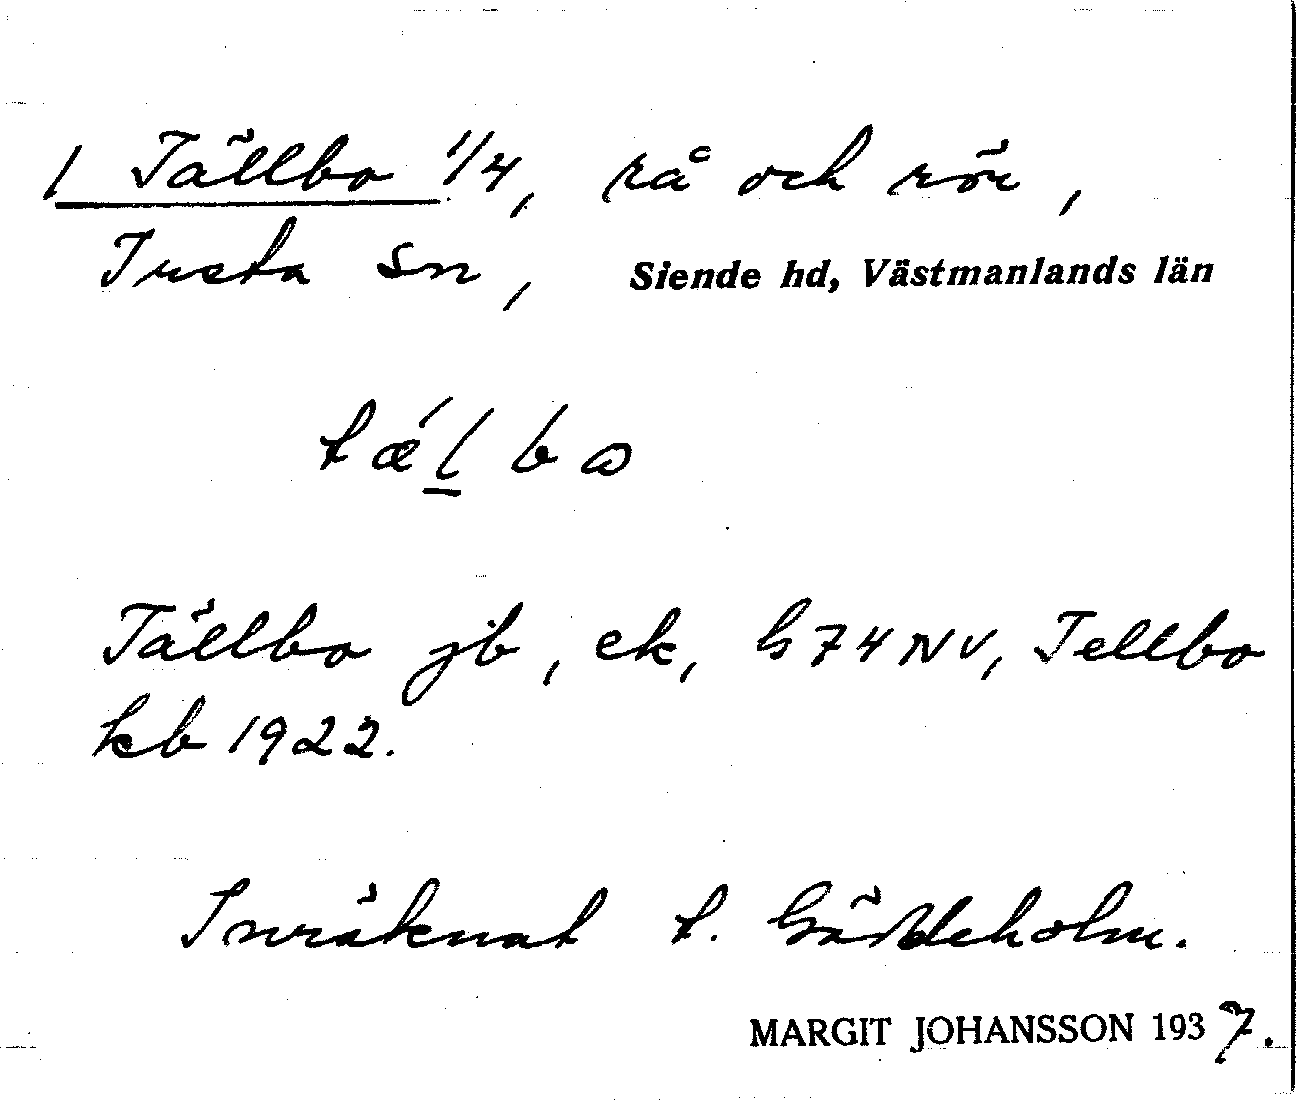 1 Tällbo 1/4, rå och rör,
Irsta sn, Siende hd, Västmanlands län
tǽl̲bɷ
Tällbo jb, ek, G74NV, Tellbo
kb 1922.
Inräknat t. Gäddeholm.
MARGIT JOHANSSON 1937.